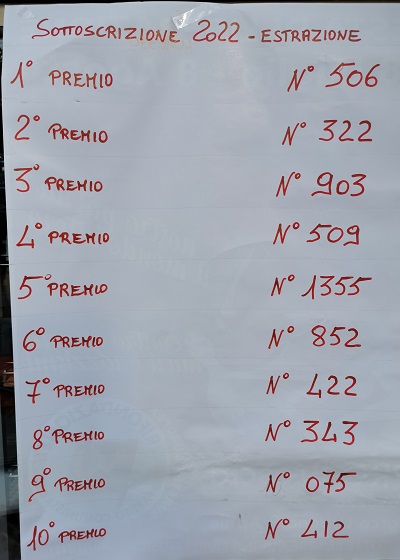 SOTTOSCRIZIONE 2022 - ESTRAZIONE
1° PREMIO N° 506
2° PREMIO N° 322
3° PREMIO N° 903
4° PREMIO N° 509
5° PREMIO N° 1355
6° PREMIO N° 852
7° PREMIO N° 422
8° PREMIO N° 343
9° PREMIO N° 075
10° PREMIO N° 412